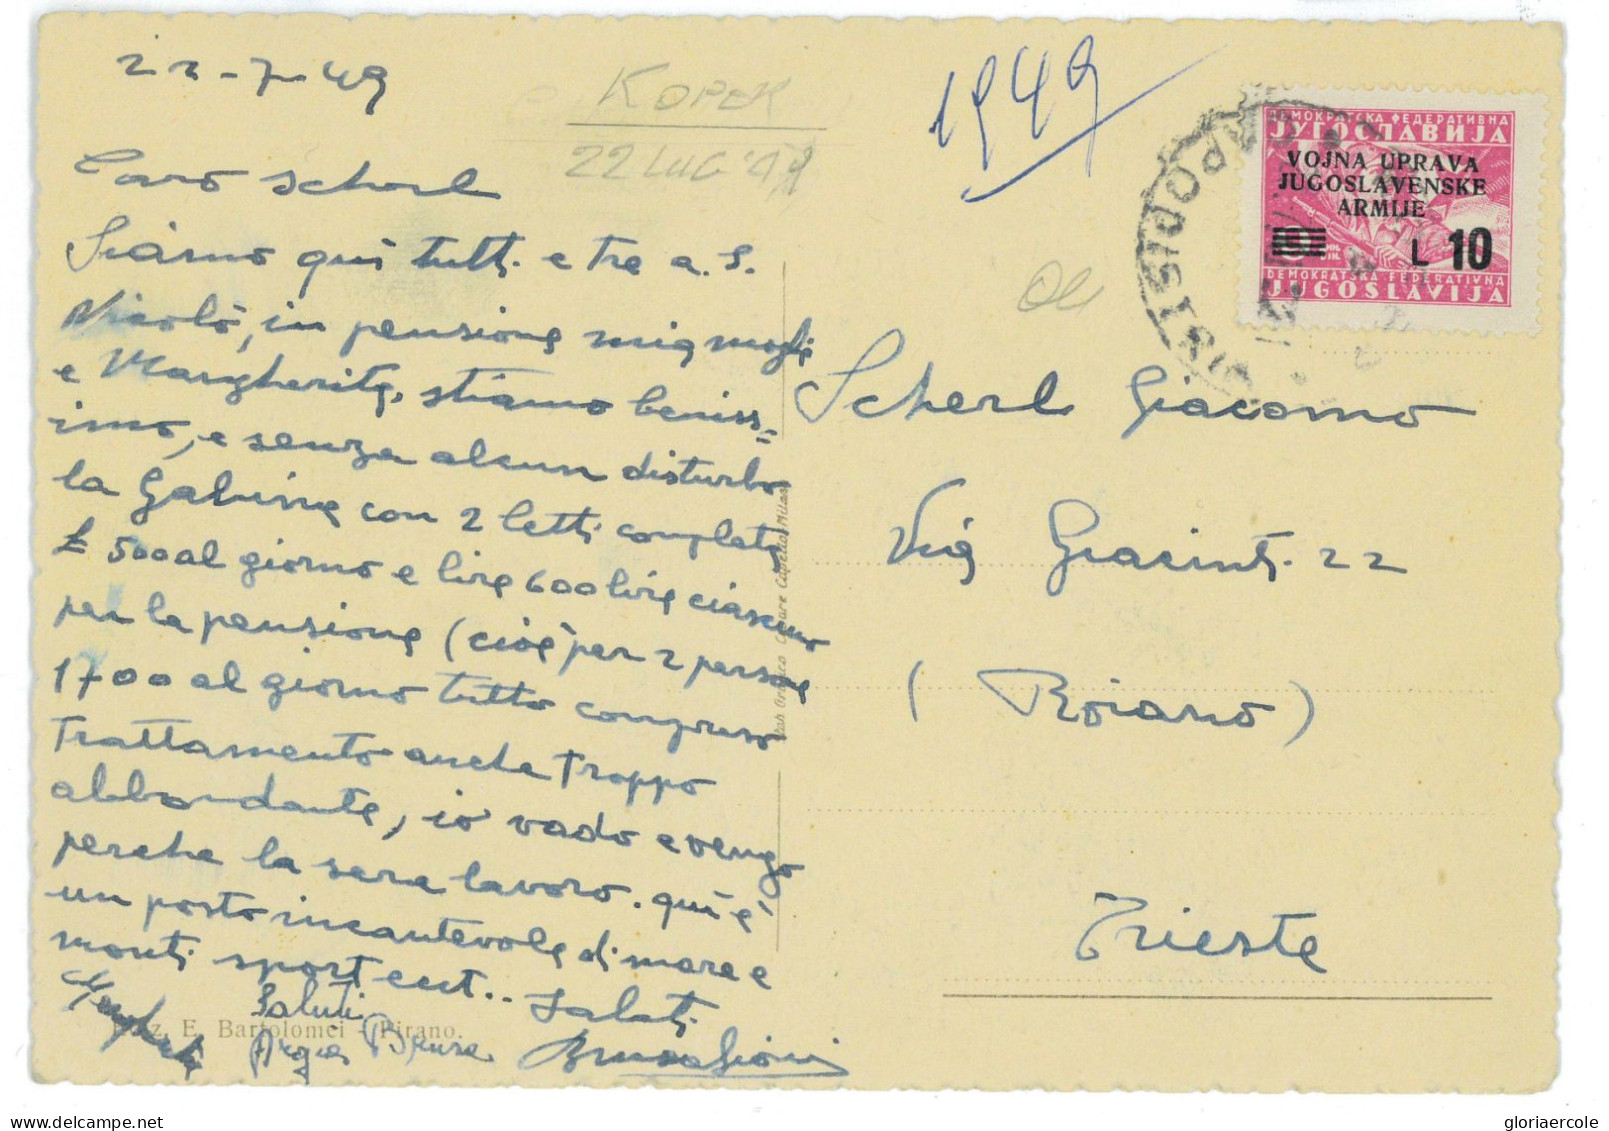 22-7-49
KOPER
22 LUG '49
1949
Caro Scherl
Siamo quì tutti e tre a S.
Nicolò, in pensione mia moglie
e Margherita, stiamo beniss=
imo, e senza alcun disturbo
la Gabina con 2 letti completa
£ 500 al giorno e lire 600 lire ciascuno
per la pensione (cioè per 2 persone
1700 al giorno tutto compreso
Trattamento anche troppo
abbondante, io vado e vengo
perche la sera lavoro. quì è
un posto incantevole di mare e
monti sport ecct.. Saluti
Saluti
Argia
Ediz. E. Bartolomei - Pirano.
Stab Grafico Cesare Capello Milano
ДЕМОКРАТСКА ФЕДЕРАТИВНА
ЈУГОСЛАВИЈА
VOJNA UPRAVA
JUGOSLAVENSKE
ARMIJE
L 10
DEMOKRATSKA FEDERATIVNA
JUGOSLAVIJA
CAPODISTRIA
Scherl Giacomo
Via Giacinti 22
(Roiano)
Trieste
gloriaercole